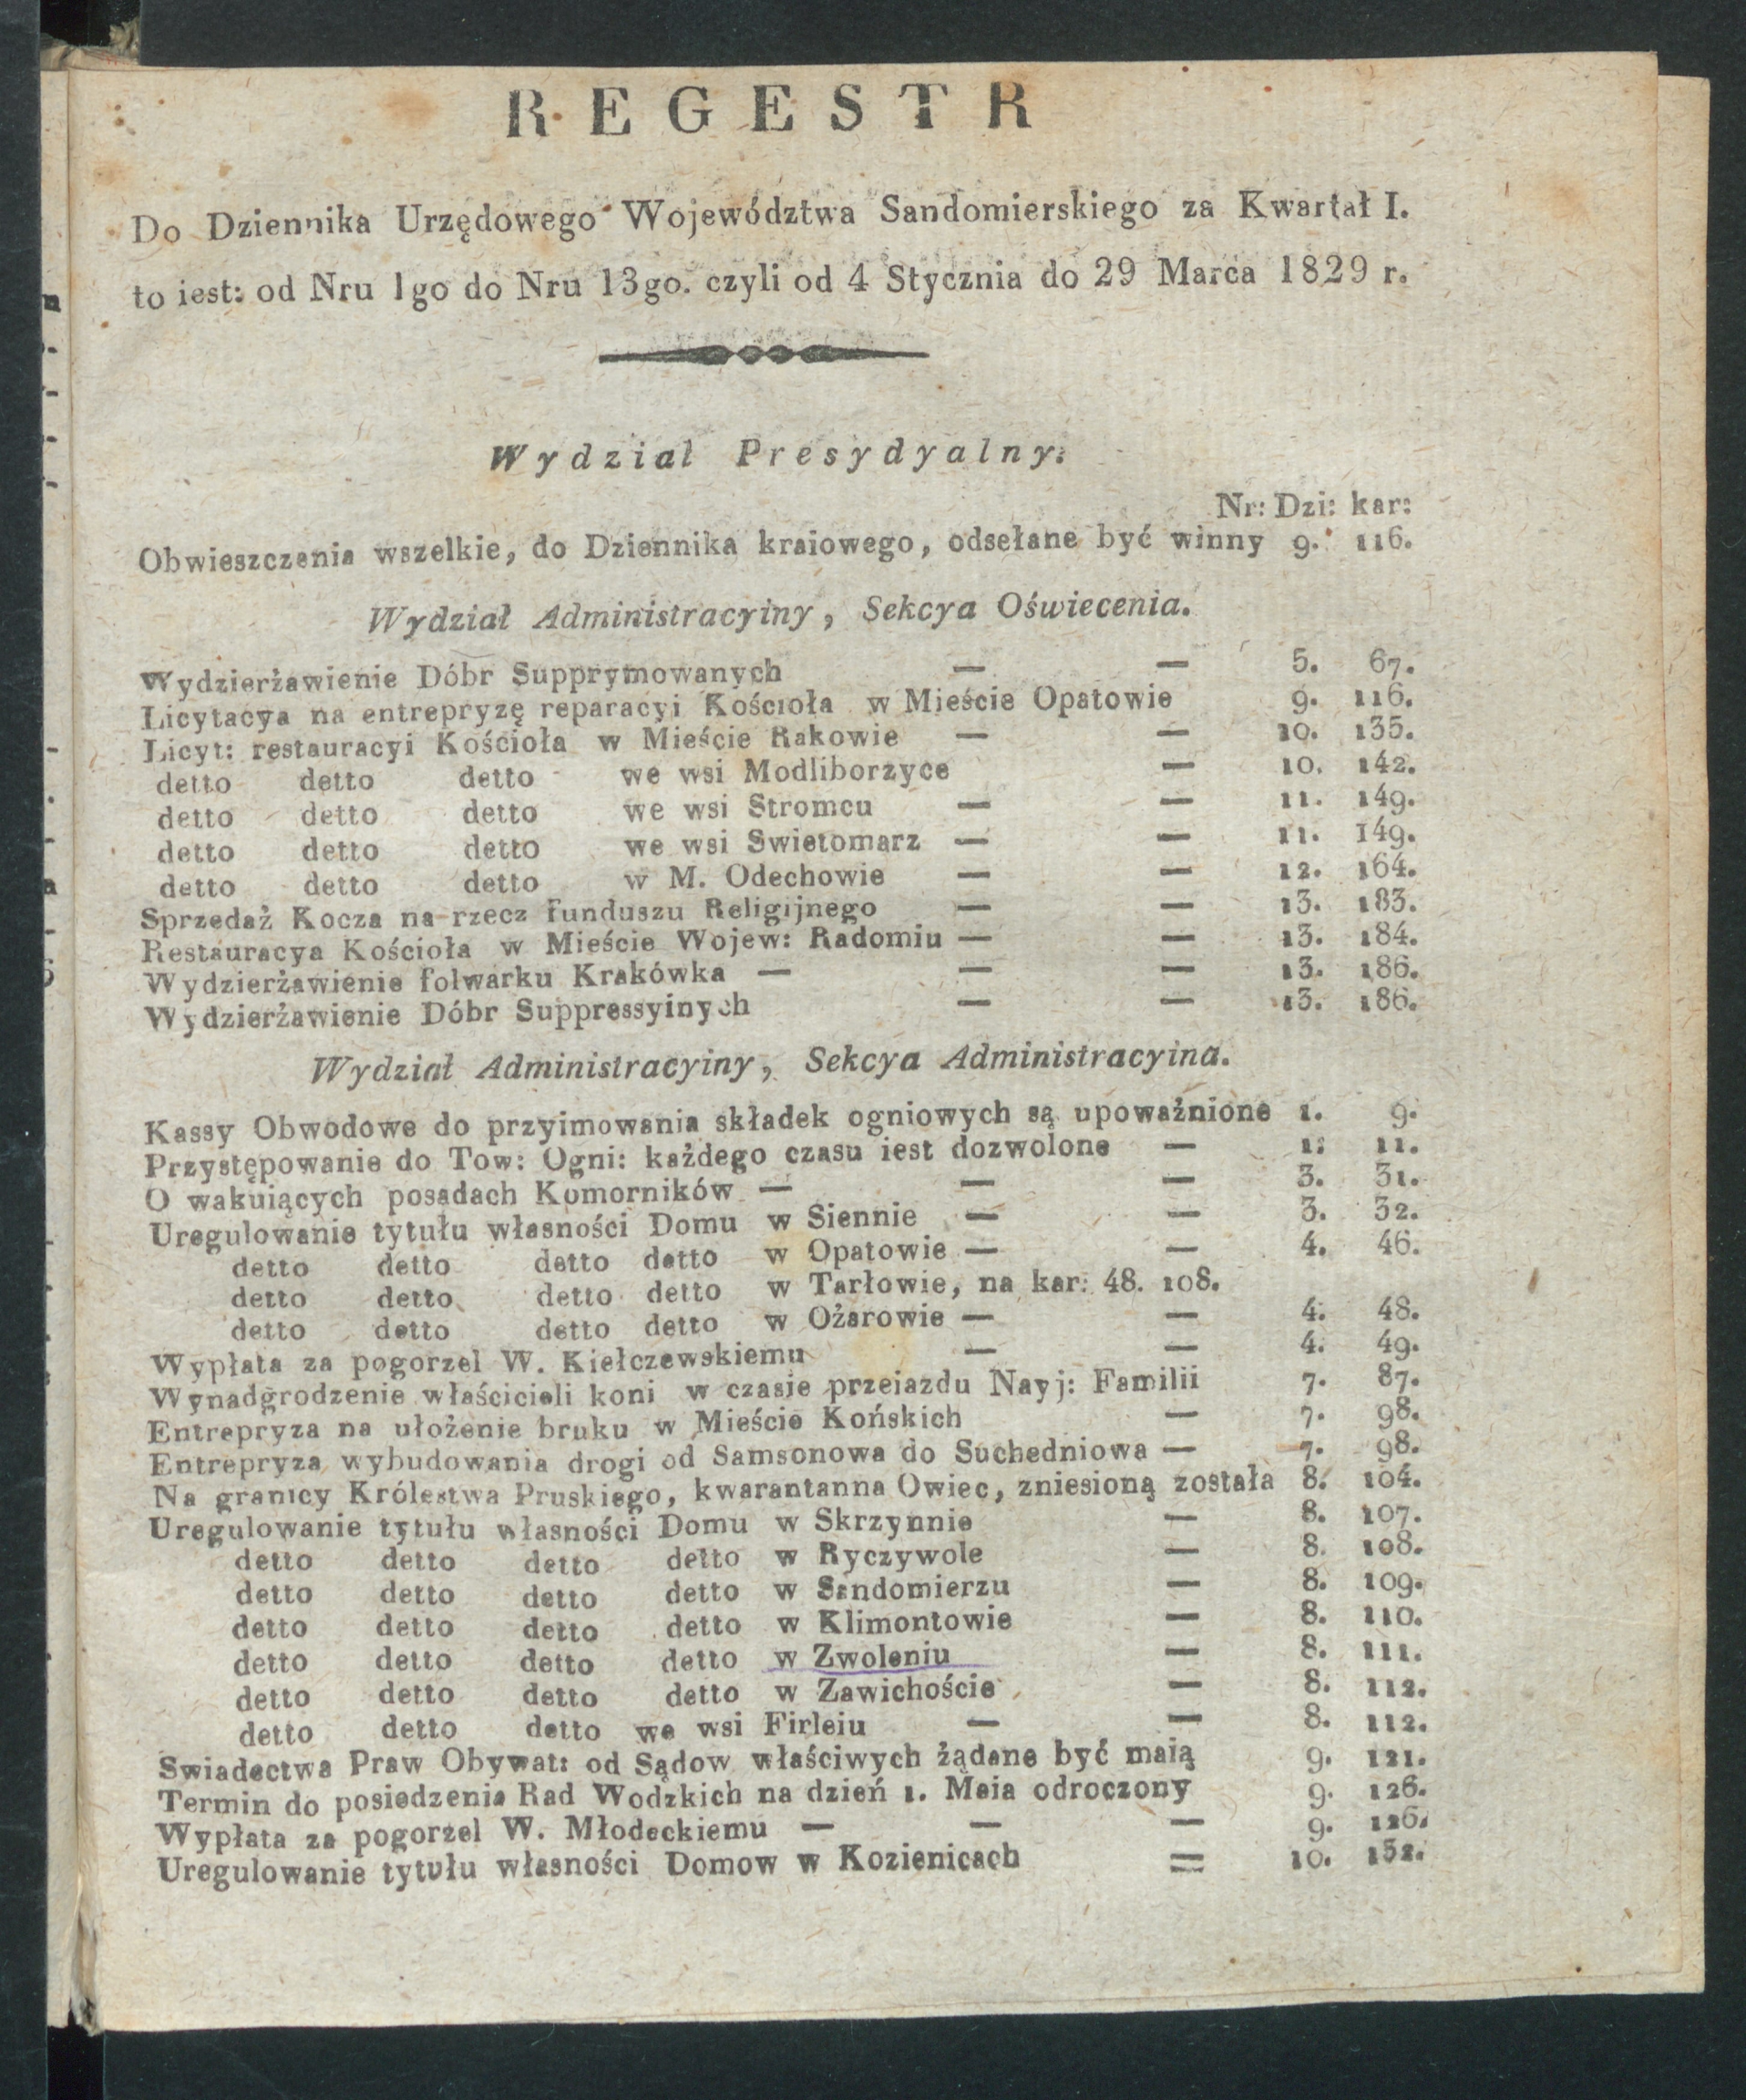 REGESTR
Do Dziennika Urzędowego Województwa Sandomierskiego za Kwartał I.
to iest: od Nru 1go do Nru 13go. czyli od 4 Stycznia do 29 Marca 1829 r.
Wydział Presydyalny.
Nr: Dzi: kar:
Obwieszczenia wszelkie, do Dziennika kraiowego, odsełane być winny 9. 116.
Wydział Administracyiny, Sekcya Oświecenia.
Wydzierżawienie Dóbr Supprymowanych — — 5. 67.
Licytacya na entrepryzę reparacyi Kościoła w Mieście Opatowie 9. 116.
Licyt: restauracyi Kościoła w Mieście Rakowie — — 10. 135.
detto detto detto we wsi Modliborzyce — 10. 142.
detto detto detto we wsi Stromcu — — 11. 149.
detto detto detto we wsi Swietomarz — — 11. 149.
detto detto detto w M. Odechowie — — 12. 164.
Sprzedaż Kocza na rzecz funduszu Religijnego — — 13. 183.
Restauracya Kościoła w Mieście Wojew: Radomiu — — 13. 184.
Wydzierżawienie folwarku Krakówka — — — 13. 186.
Wydzierżawienie Dóbr Suppressyinych — — 13. 186.
Wydział Administracyiny, Sekcya Administracyina.
Kassy Obwodowe do przyimowania składek ogniowych są upoważnione 1. 9.
Przystępowanie do Tow: Ogni: każdego czasu iest dozwolone — 1: 11.
O wakuiących posadach Komorników — — — 3. 31.
Uregulowanie tytułu własności Domu w Siennie — — 3. 32.
detto detto detto detto w Opatowie — — 4. 46.
detto detto detto detto w Tarłowie, na kar: 48. 108.
detto detto detto detto w Ożarowie — — 4. 48.
Wypłata za pogorzel W. Kiełczewskiemu — — 4. 49.
Wynadgrodzenie właścicieli koni w czasie przeiazdu Nayj: Familii 7. 87.
Entrepryza na ułożenie bruku w Mieście Końskich — 7. 98.
Entrepryza wybudowania drogi od Samsonowa do Suchedniowa — 7. 98.
Na granicy Królestwa Pruskiego, kwarantanna Owiec, zniesioną została 8. 104.
Uregulowanie tytułu własności Domu w Skrzynnie — 8. 107.
detto detto detto detto w Ryczywole — 8. 108.
detto detto detto detto w Sandomierzu — 8. 109.
detto detto detto detto w Klimontowie — 8. 110.
detto detto detto detto w Zwoleniu — 8. 111.
detto detto detto detto w Zawichoście — 8. 112.
detto detto detto we wsi Firleiu — — 8. 112.
Swiadectwa Praw Obywat: od Sądow właściwych żądane być maią 9. 121.
Termin do posiedzenia Rad Wodzkich na dzień 1. Maia odroczony 9. 126.
Wypłata za pogorzel W. Młodeckiemu — — — 9. 126.
Uregulowanie tytułu własności Domow w Kozienicach = 10. 132.